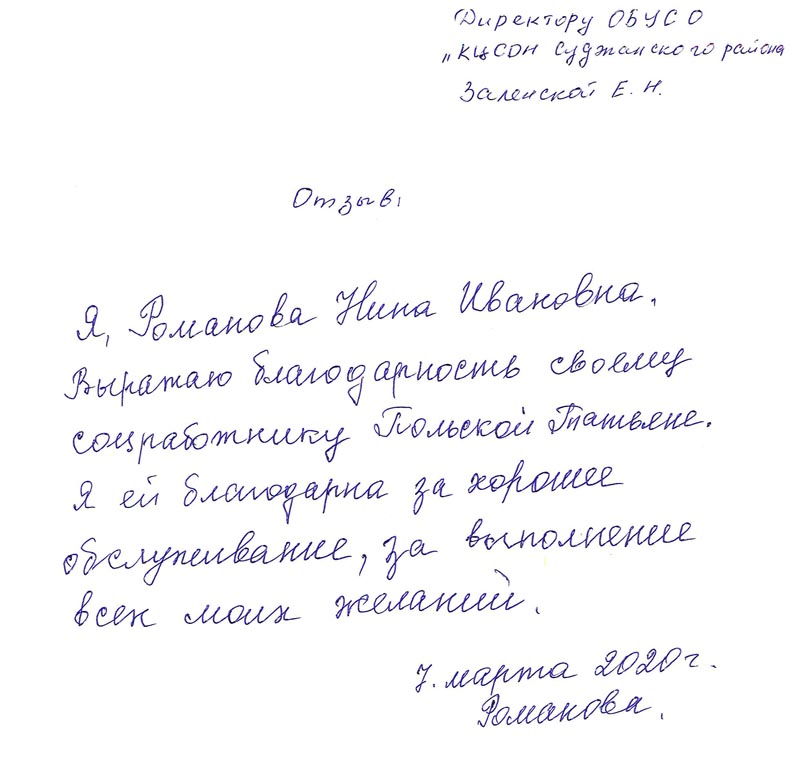 Директору ОБУСО
„КЦСОН Суджанского района
Залейской Е. Н.
Отзыв.
Я, Романова Нина Ивановна.
Выражаю благодарность своему
соцработнику Польской Татьяне.
Я ей благодарна за хорошее
обслуживание, за выполнение
всех моих желаний.
7. марта 2020 г.
Романова.